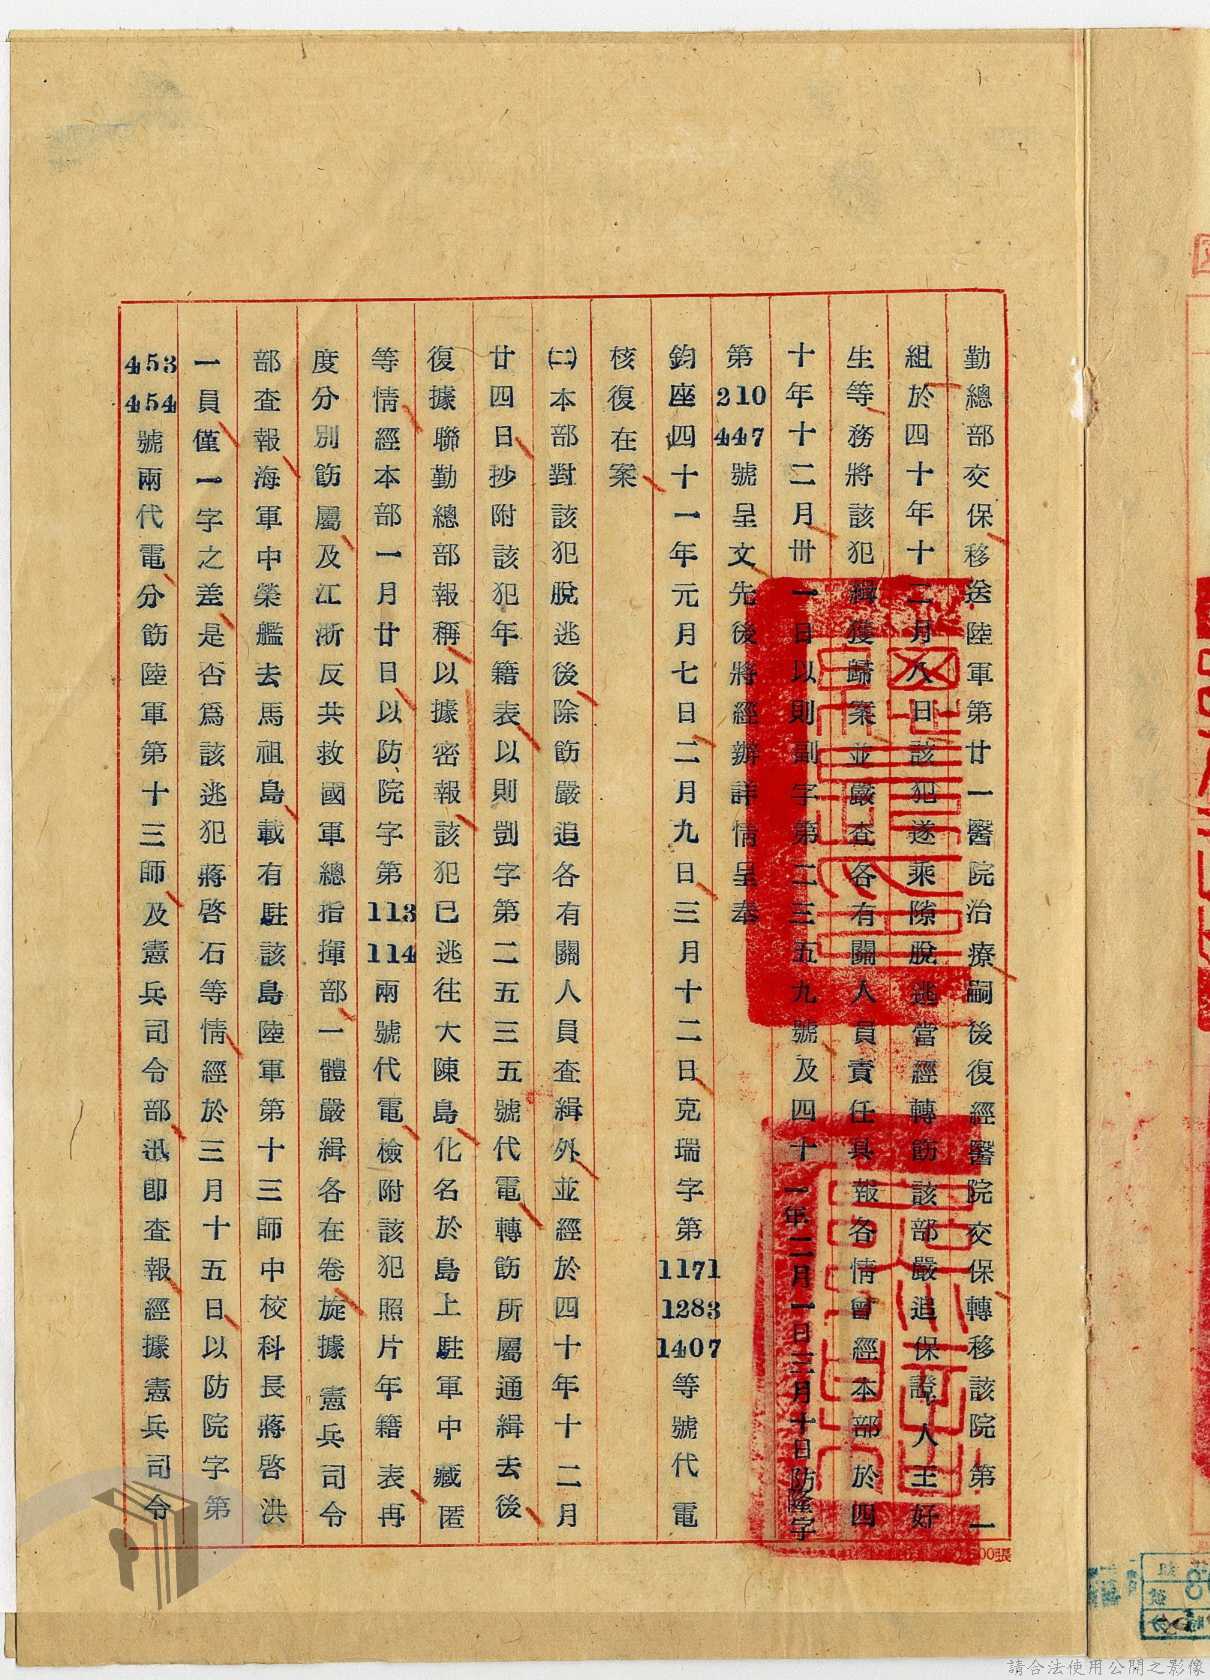 勤總部交保移送陸軍第廿一醫院治療嗣後復經醫院交保轉移該院第一
組於四十年十二月八日該犯遂乘隙脫逃當經轉飭該部嚴追保證人王好
生等務將該犯緝獲歸案並嚴查各有關人員責任具報各情曾經本部於四
十年十二月卅一日以則副字第二三五九號及四十一年二月一日三月十日防隆字
第210 447號呈文先後將經辦詳情呈奉
鈞座四十一年元月七日二月九日三月十二日克瑞字第1171 1283 1407等號代電
核復在案
㈡本部對該犯脫逃後除飭嚴追各有關人員查緝外並經於四十年十二月
廿四日抄附該犯年籍表以則剴字第二五三五號代電轉飭所屬通緝去後
復據聯勤總部報稱以據密報該犯已逃往大陳島化名於島上駐軍中藏匿
等情經本部一月廿日以防院字第113 114兩號代電檢附該犯照片年籍表再
度分別飭屬及江浙反共救國軍總指揮部一體嚴緝各在卷旋據憲兵司令
部查報海軍中榮艦去馬祖島載有駐該島陸軍第十三師中校科長蔣啓洪
一員僅一字之差是否爲該逃犯蔣啓石等情經於三月十五日以防院字第
453 454號兩代電分飭陸軍第十三師及憲兵司令部迅卽查報經據憲兵司令
請合法使用公開之影像